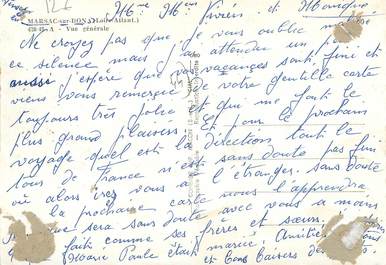 Mme Mr Vivien et Monique
MARSAC-sur-DON (Loire-Atlant.)
428-15-A - Vue générale
Ne croyez pas que je vous oublie malgré
ce silence mais j'ai attendu un peu
aussi j'espère que vos vacances sont fini et
viens vous remercier de votre gentille carte
toujours très jolie et qui me font le
plus grand plaisir. Et pour le prochain
voyage quel est la direction tout le
tour de France n'est sans doute pas fini
où alors irez vous a l'étranger. sans doute
la prochaine carte nous l'apprendra
sera sans doute avec vous a moins
fait comme ses frères et sœurs.
Marie Paule était marié. Amitiés
et Bons Baisers